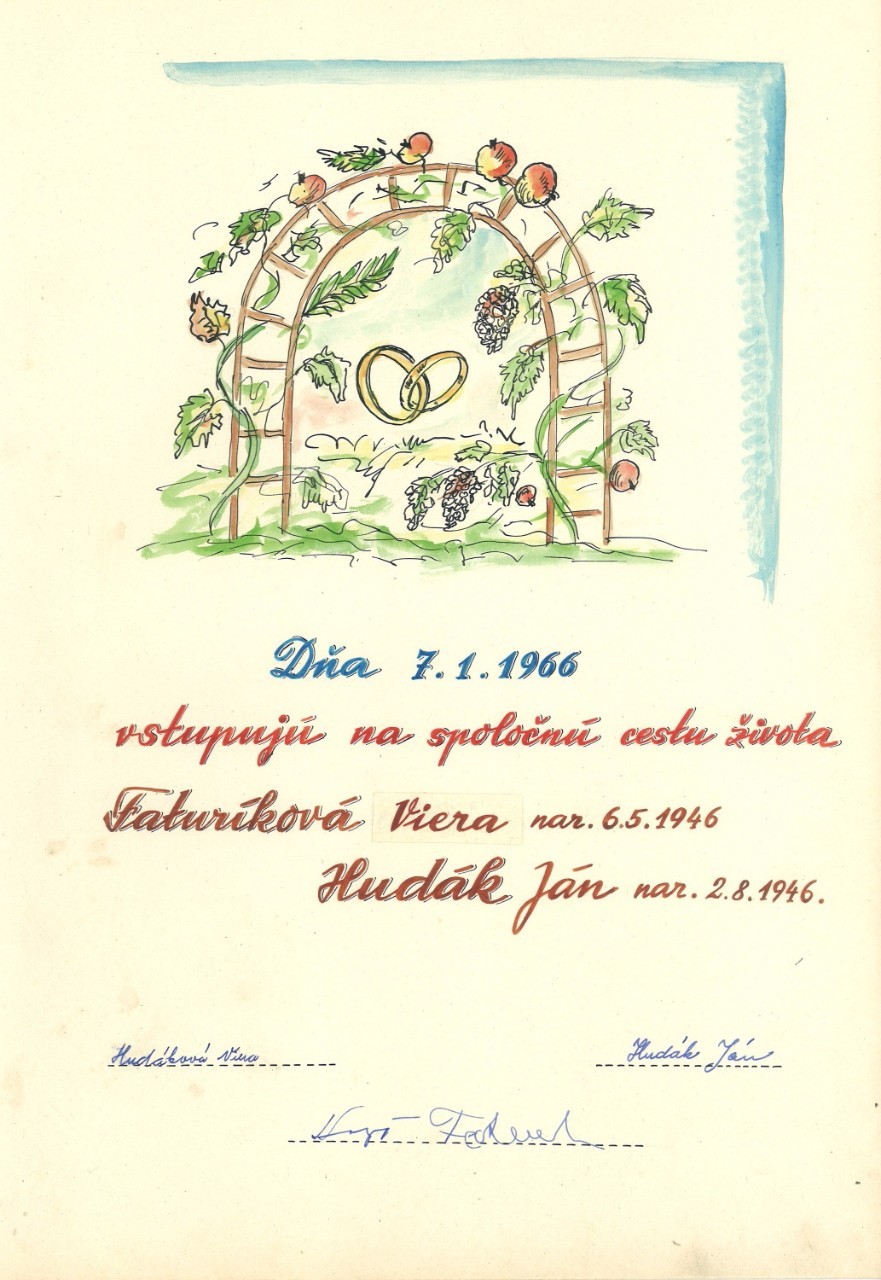 Dňa 7.1.1966
vstupujú na spoločnú cestu života
Faturíková Viera nar. 6.5.1946
Hudák Ján nar. 2.8.1946.
Hudáková Viera
Hudák Ján